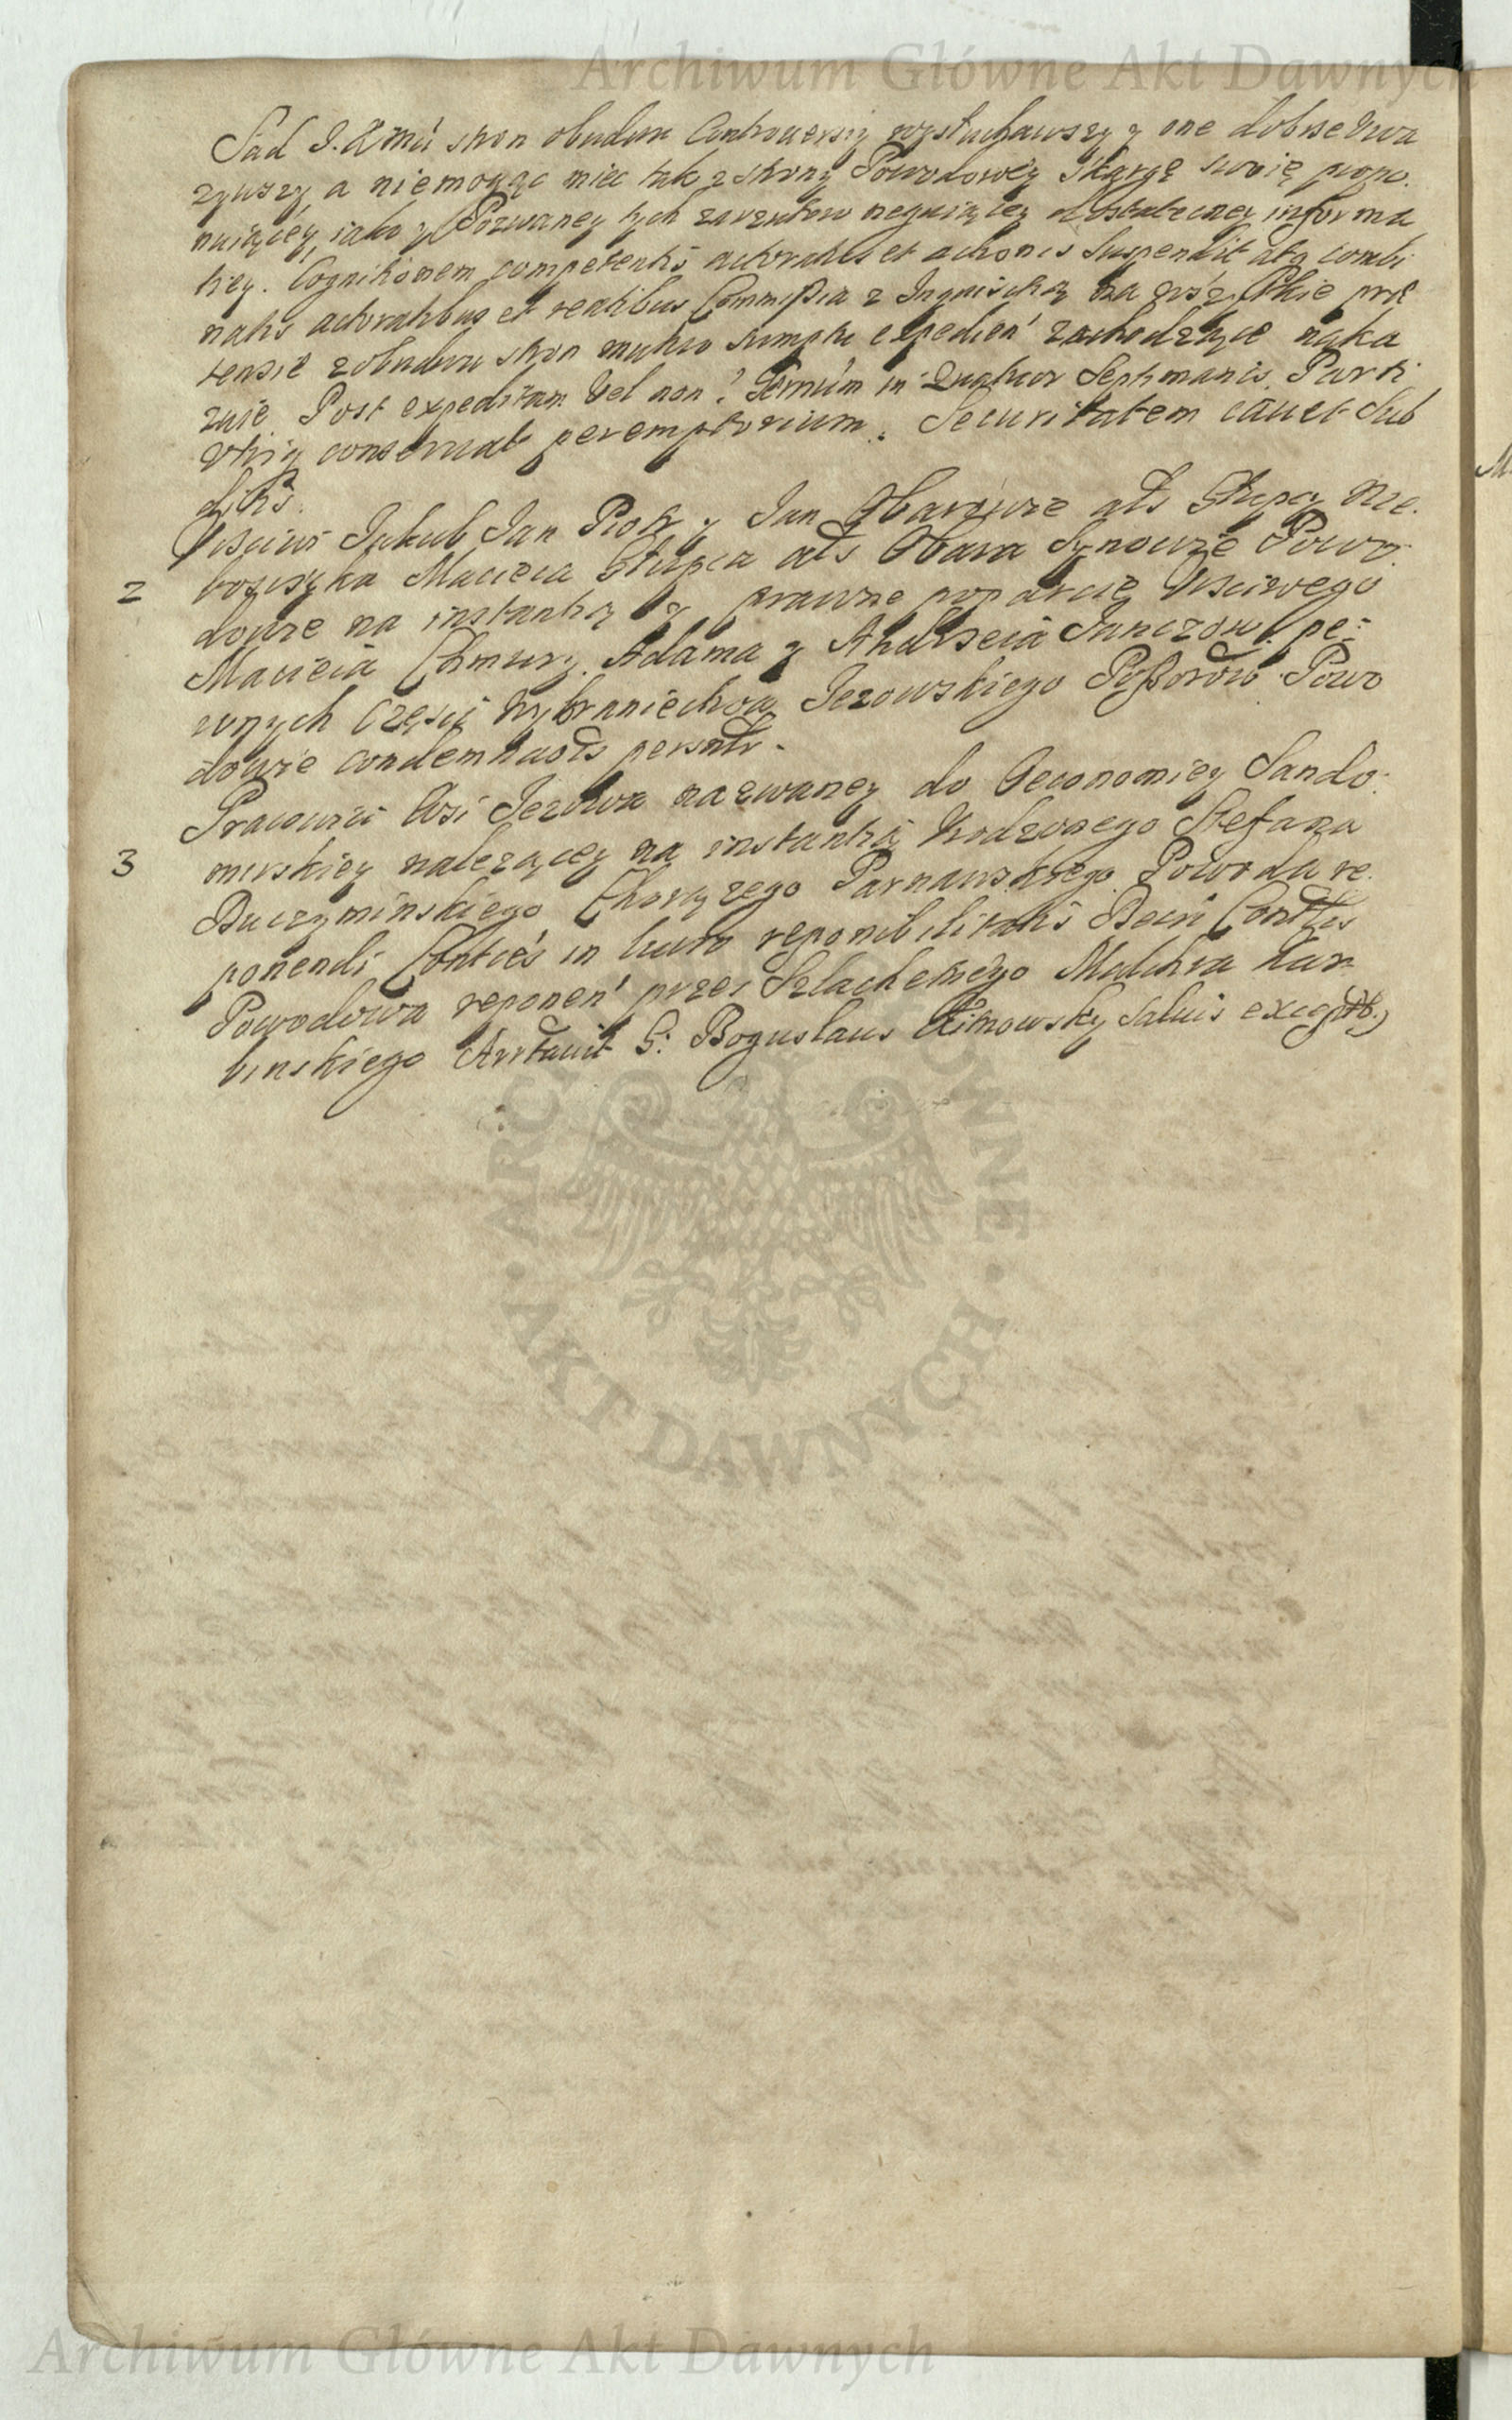 Archiwum Główne Akt Dawnych
Sąd J. K Mći stron obudwu Controuersiy wysłuchawszy y one dobrze Uwa
żywszy, a niemogąc miec tak z strony Powodowey skargę swoię propo.
nuiącey, iako y Pozwaney tych zarzutow neguiącey dostateczney informa
tiey. Cognitionem competentis actoratus et actionis suspendit atq combi
natis actoratibus et reatibus Commissia z Inquisitią na wszytkie præ
tensie z obudwu stron mutuo sumptu expedien' zachodzące naka
zuie. Post expeditam vel non? Termin' in quatuor septimanis Parti
utriq conseruat peremptorium. Securitatem cauet sub
2 Uściwi Jakub Jan Piotr y Jan Obarowie als
boszczyka Macieia als Obara Synowie Powo
dowie na instantią y prawne poparcie Uściwego
Macieia Chmury, Adama y Andrzeia pe=
wnych części Wybraniectwa Jezowskiego Possorow Powo
dowie condemnaols personlr.
3 Pracowici Wsi Jezowa nazwaney do Oeconomiey Sando.
mirskiey nalezącey na instantią Urodzonego Stefana
Chorązego Parnawskiego Powoda re.
ponendi Contles in luero reponibilitatis Decri Contles
Powodowa reponen' przez Szlachetnego Melchra Kar
binskiego Arrtauit G: Boguslaus saluis exceptb.
ARCHIWUM GŁÓWNE AKT DAWNYCH
Archiwum Główne Akt Dawnych